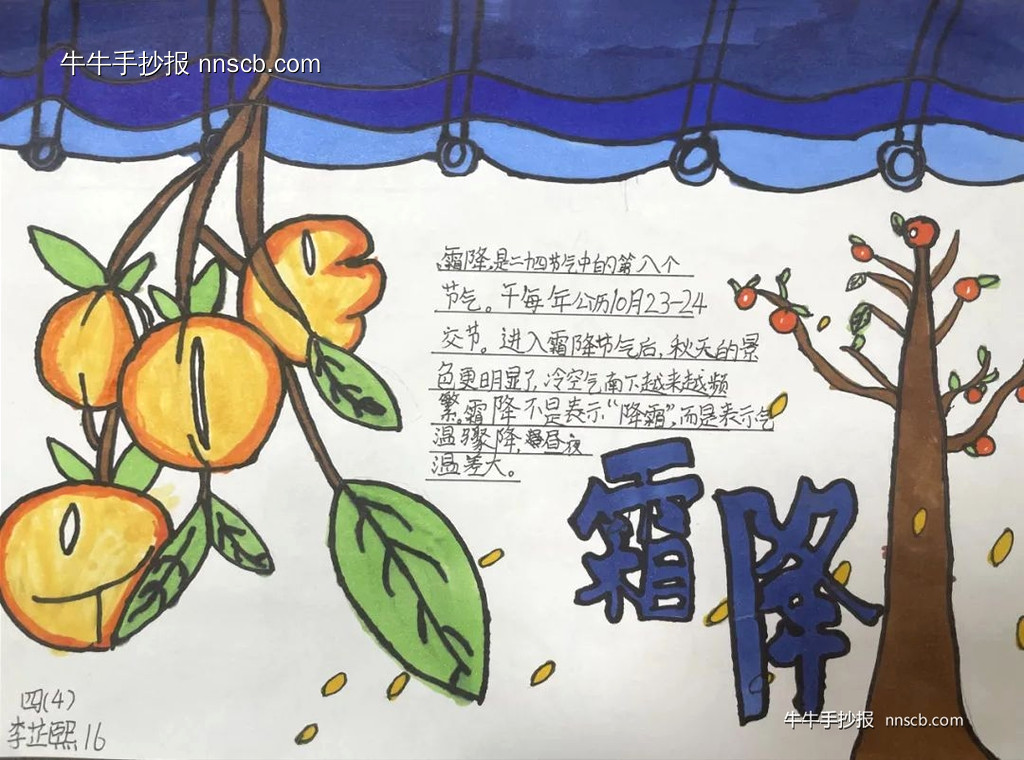 牛牛手抄报 nnscb.com
霜降,是二十四节气中的第八个
节气。于每年公历10月23-24
交节。进入霜降节气后,秋天的景
色更明显了,冷空气南下越来越频
繁。霜降不是表示“降霜”,而是表示气
温骤降,昼夜
温差大。
霜降
四(4)
李芷熙16
牛牛手抄报 nnscb.com